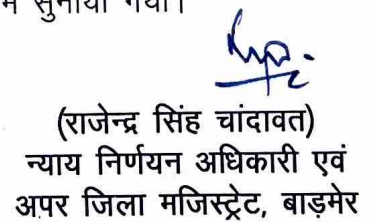 में सुनाया गया।
(राजेन्द्र सिंह चांदावत)
न्याय निर्णयन अधिकारी एवं
अपर जिला मजिस्ट्रेट, बाड़मेर